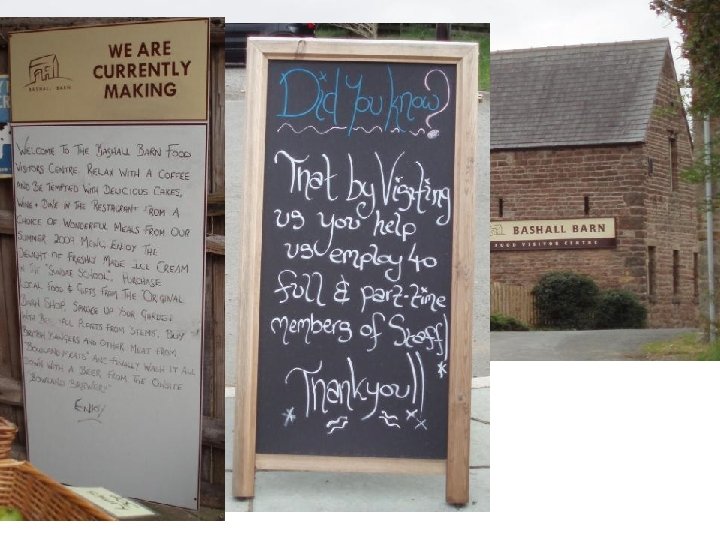 WE ARE
CURRENTLY
MAKING
BASHALL BARN
WELCOME TO THE BASHALL BARN FOOD
VISITORS CENTRE. RELAX WITH A COFFEE
AND BE TEMPTED WITH DELICIOUS CAKES,
WINE + DINE IN THE RESTAURANT FROM A
CHOICE OF WONDERFUL MEALS FROM OUR
SUMMER 2009 MENU, ENJOY THE
DELIGHT OF FRESHLY MADE ICE CREAM
IN THE "SUNDAE SCHOOL", PURCHASE
LOCAL FOOD & GIFTS FROM THE "ORIGINAL
BARN SHOP, SPRUCE UP YOUR GARDEN
WITH PLANTS FROM STEMS, BUY
BRITISH BANGERS AND OTHER MEAT FROM
"BOWLAND MEATS" AND FINALLY WASH IT ALL
DOWN WITH A BEER FROM THE ONSITE
"BOWLAND BREWERY"
ENJOY
Did You know?
That by Visiting
us you help
us employ 40
full & part-time
members of Staff!
Thankyou!!
BASHALL BARN
FOOD VISITOR CENTRE